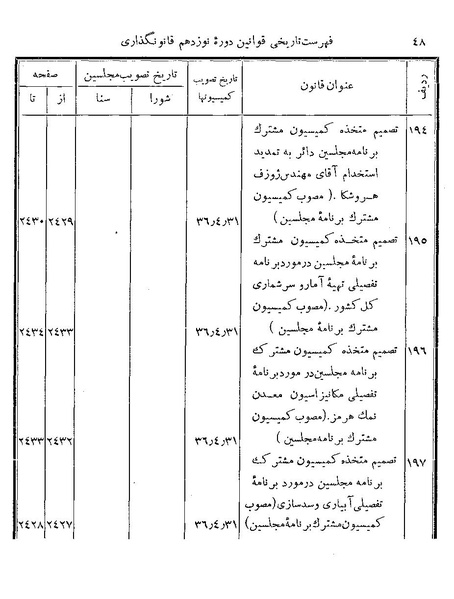 ۴۸ فهرست تاریخی قوانین دورهٔ نوزدهم قانونگذاری
ردیف عنوان قانون تاریخ تصویب کمیسیونها تاریخ تصویب مجلسین صفحه
شورا سنا از تا
۱۹۴ تصمیم متخذه کمیسیون مشترك
برنامه مجلسین دائر به تمدید
استخدام آقای مهندس ژوزف
هروشکا . ( مصوب کمیسیون
مشترك برنامهٔ مجلسین ) ۳۶٫۴٫۳۱ ۲۴۲۹ ۲۴۳۰
۱۹۵ تصمیم متخذه کمیسیون مشترك
برنامهٔ مجلسین درمورد برنامه
تفصیلی تهیهٔ آمار و سرشماری
کل کشور . (مصوب کمیسیون
مشترك برنامهٔ مجلسین ) ۳۶٫۴٫۳۱ ۲۴۳۳ ۲۴۳۴
۱۹۶ تصمیم متخذه کمیسیون مشترك
برنامه مجلسین در مورد برنامهٔ
تفصیلی مکانیزاسیون معدن
نمك هرمز . (مصوب کمیسیون
مشترك برنامه مجلسین ) ۳۶٫۴٫۳۱ ۲۴۳۲ ۲۴۳۳
۱۹۷ تصمیم متخذه کمیسیون مشترك
برنامه مجلسین درمورد برنامهٔ
تفصیلی آبیاری وسدسازی (مصوب
کمیسیون مشترك برنامهٔ مجلسین) ۳۶٫۴٫۳۱ ۲۴۲۷ ۲۴۲۸